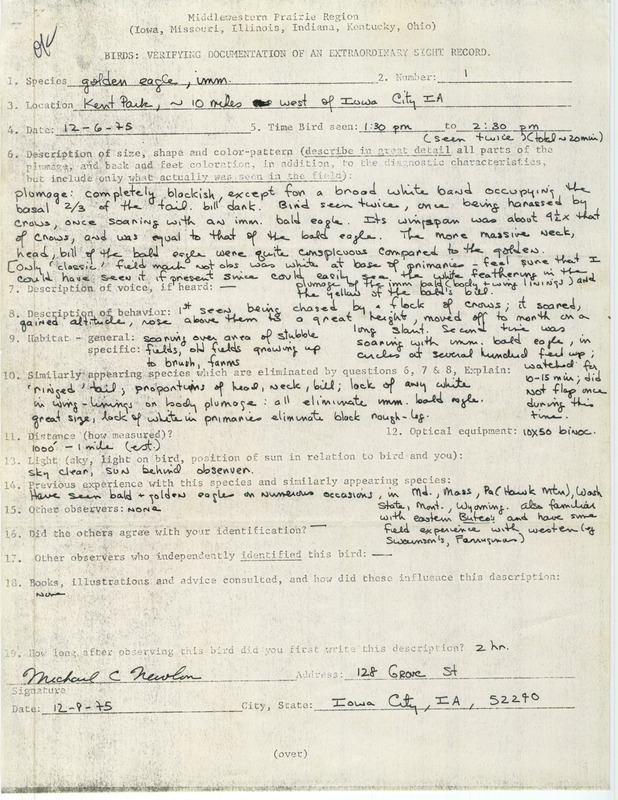 Middlewestern Prairie Region
(Iowa, Missouri, Illinois, Indiana, Kentucky, Ohio)
ok
BIRDS: VERIFYING DOCUMENTATION OF AN EXTRAORDINARY SIGHT RECORD.
1. Species golden eagle, imm. 2. Number: 1
3. Location Kent Park, ~ 10 miles west of Iowa City IA
4. Date: 12-6-75 5. Time Bird seen: 1:30 pm to 2:30 pm
(seen twice) (total ~ 20 min)
6. Description of size, shape and color-pattern (describe in great detail all parts of the
plumage, and beck and feet coloration, in addition, to the diagnostic characteristics,
but include only what actually was seen in the field):
plumage: completely blackish except for a broad white band occupying the
basal 2/3 of the tail. bill dark. Bird seen twice, once being harassed by
crows, once soaring with an imm. bald eagle. Its wingspan was about 4½x that
of crows, and was equal to that of the bald eagle. The more massive neck,
head, bill of the bald eagle were quite conspicuous compared to the golden.
[Only "classic" field mark not obs was white at base of primaries - feel sure that I
could have seen it if present since could easily see the white feathering in the
plumage of the imm bald (body + wing linings) and
7. Description of voice, if heard: —
the yellow of the bald's bill.
8. Description of behavior: 1st seen, being chased by a flock of crows; it soared,
gained altitude, rose above them to a great height, moved off to north on a
long slant. Second time was
9. Habitat - general: soaring over area of stubble
soaring with imm. bald eagle, in
specific: fields, old fields growing up
circles at several hundred feet up;
to brush, farms
watched for
10. Similarly appearing species which are eliminated by questions 6, 7 & 8, Explain:
10-15 min; did
"ringed" tail; proportions of head, neck, bill; lack of any white
not flap once
in wing-linings or body plumage: all eliminate imm. bald eagle.
during this
great size, lack of white in primaries eliminate black rough-leg.
time.
11. Distance (how measured)? 12. Optical equipment: 10X50 binoc.
1000' - 1 mile (est)
13. Light (sky, light on bird, position of sun in relation to bird and you):
sky clear, sun behind observer.
14. Previous experience with this species and similarly appearing species:
Have seen bald + golden eagle on numerous occasions, in Md., Mass, Pa (Hawk Mtn), Wash
15. Other observers: none
State, Mont., Wyoming. also familiar
with eastern Buteo's and have some
16. Did the others agree with your identification? —
field experience with western (eg
Swainson's, Ferruginous)
17. Other observers who independently identified this bird: —
18. Books, illustrations and advice consulted, and how did these influence this description:
none
19. How long after observing this bird did you first write this description? 2 hr.
Michael C Newlon Address: 128 Grove St
Signature
Date: 12-9-75 City, State: Iowa City, IA, 52240
(over)